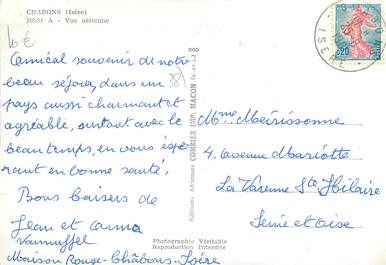 CHABONS (Isère)
160-31 A - Vue aérienne
10 €
38
Amical souvenir de notre
beau séjour, dans un
pays aussi charmant et
agréable, surtout avec le
beau temps, en vous espé-
rant en bonne santé.
Bons baisers de
Jean et Anna
Vannuffel
Maison Rouge - Châbons - Isère
Editions Aériennes COMBIER IMP. MACON
Photographie Véritable
Reproduction Interdite
0,20
ISERE
Mme Meirissonne
4, avenue Mariotte
La Varenne Ste Hilaire
Seine et Oise